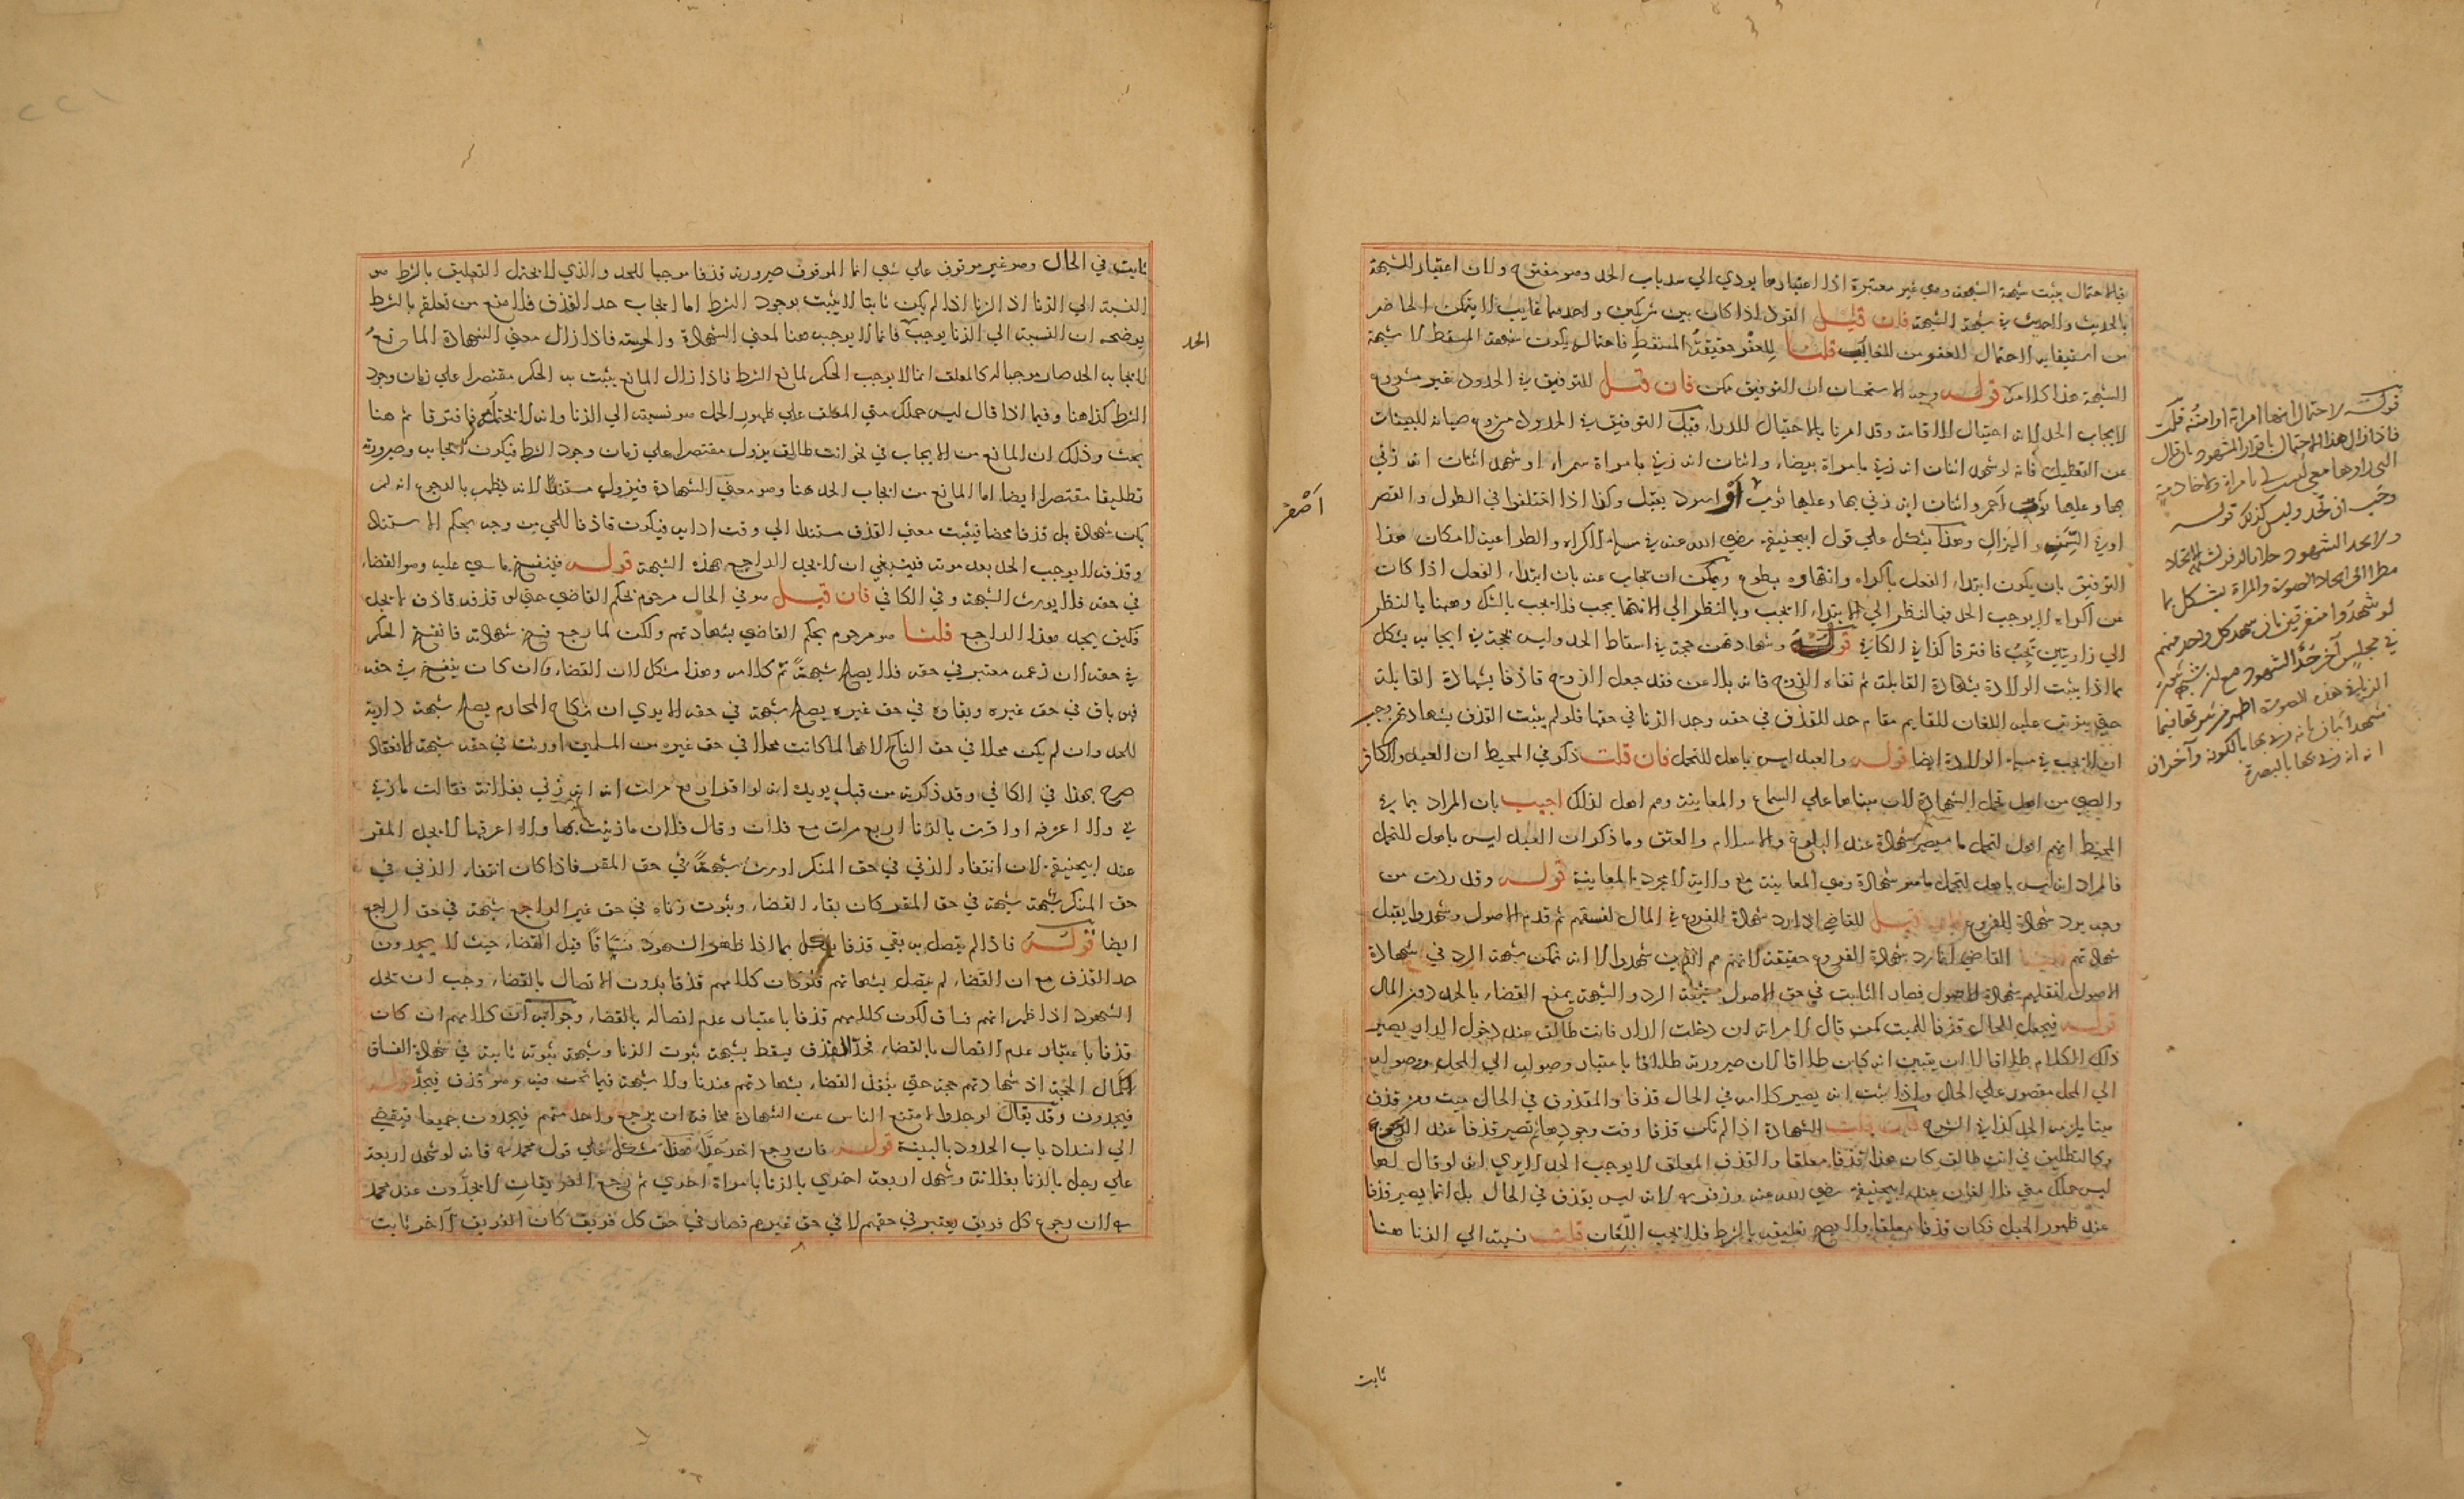 فبالاحتمال يثبت شبهة الشبهة وهي غير معتبرة اذا اعتبارها يودي الي سد باب الحد وهو مفتوح ولان اعتبار الشبهة
بالحديث والحديث في شبهة الشبهة فان قيل القود اذا كان بين شريكين واحدهما غايب لا يتمكن الحاضر
من استيفايه لاحتمال العفو من الغايب قلنا للعفو حقيقة المسقط فاحتماله يكون شبهة المسقط لا شبهة
الشبهة هذا كلامه قوله وجه الاستحسان ان التوفيق ممكن فان قيل التوفيق في الحدود غير مشروع
لايجاب الحد لانه احتيال للاقامة وقد امرنا بالاحتيال للدرا قيل التوفيق في الحدود مشروع صيانة للبينات
عن التعطيل فانه لو شهد اثنان انه زني بامراة بيضاء واثنان انه زني بامراة سمراء او شهد اثنان انه زني
بها وعليها ثوب احمر واثنان انه زني بها وعليها ثوب اسود يقبل وكذا اذا اختلفوا في الطول والقصر
او في السمن والهزال وهذا يشكل علي قول ابيحنيفة رضي الله عنه في مسالة الاكراه والطواعية لامكان هذا
التوفيق بان يكون ابتداء الفعل باكراه وانتهاوه بطوع ويمكن ان يجاب عنه بان ابتداء الفعل اذا كان
عن اكراه لا يوجب الحد فبالنظر الي الابتداء لا يجب وبالنظر الي الانتها يجب فلا يجب بالشك وههنا بالنظر
الي زاويتين يجب فافترقا كذا في الكافي قوله وشهادتهن حجة في اسقاط الحد وليس بحجة في ايجابه يشكل
بما اذا يثبت الولادة بشهادة القابلة ثم نفاه الزوج فانه يلاعن فقد جعل الزوج قاذفا بشهادة القابلة
حتي يترتب عليه اللعان القايم مقام حد القذف في حقه وحد الزنا في حقها فلو لم يثبت القذف بشهادتهن وجب
ان لا يجب في مسالة الولادة ايضا قوله والعبد ليس باهل للتحمل فان قلت ذكر في المحيط ان العبد والكافر
والصبي من اهل تحمل الشهادة لان مبناها علي السماع والمعاينة وهم اهل لذلك اجيب بان المراد بما في
المحيط انهم اهل لتحمل ما سيصير شهادة عند البلوغ والاسلام والعتق وما ذكر ان العبد ليس باهل للتحمل
فالمراد انه ليس باهل لتحمل ما هو شهادة وهي المعاينة مع ولاية لا مجرد المعاينة قوله وقد ردت من
وجه برد شهادة الفروع فان قيل القاضي اذا رد شهادة الفروع في المال لفسقهم ثم قدم الاصول وشهدوا يقبل
شهادتهم قلنا القاضي انما رد شهادة الفروع حقيقة لانهم هم الذين شهدوا الا انه تمكن شبهة الرد في شهادة
الاصول لنقلهم شهادة الاصول فصار الثابت في حق الاصول شبهة الرد والشبهة يمنع القضاء بالحد دون المال
قوله فيجعل للحال قذفا للميت كمن قال لامراته ان دخلت الدار فانت طالق عند دخول الدار يصير
ذلك الكلام طلاقا لا ان يتبين انه كان طلاقا لان صيرورته طلاقا باعتبار وصوله الي المحل ووصوله
الي المحل مقصور علي الحال واذا ثبت انه يصير كلامه في الحال قذفا والمقذوف في الحال ميت ومن قذف
ميتا يلزمه الحد كذا في الشرح فان قلت الشهادة اذا لم تكن قذفا وقت وجودها ثم تصير قذفا عند الرجوع
وكالتطليق في انت طالق كان هذا قذفا معلقا والقذف المعلق لا يوجب الحد الا يري انه لو قال لها
ليس حملك مني فلا لعان عند ابيحنيفة رضي الله عنه وزفر لانه ليس بقذف في الحال بل انما يصير قذفا
عند ظهور الحبل فكان قذفا معلقا ولا يصح تعليقه بالشرط فلا يجب اللعان قلت نسبته الي الزنا هنا
قوله لاحتمال انها امراته او امته قلت
فاذا زال هذا الاحتمال باقرار المشهود بان قال
وجب ان تحد وليس كذلك قوله
ولا يحد الشهود
لو شهدوا متفرقين بان شهد كل واحد منهم
في مجلس آخر حد الشهود
شهد اثنان انه زني بها بالكوفة وآخران
انه زني بها بالبصرة
اصفر
ثابت
ثابت في الحال وهو غير موقوف علي شي انما الموقوف صيرورته قذفا موجبا للحد والذي لا يحتمل التعليق بالشرط هو
النسبة الي الزنا اذ الزنا اذا لم يكن ثابتا لا يثبت بوجود الشرط اما ايجاب حد القذف فلا منع من تعلقه بالشرط
يوضحه ان النسبة الي الزنا يوجب فانما لا يوجب هنا لمعني الشهادة والحرمة فاذا زال معني الشهادة المانع
لايجاب الحد صار موجبا له كالمعلق انما لا يوجب الحكم لمانع الشرط فاذا زال المانع يثبت به الحكم مقتصرا علي زمان وجود
الشرط كذا هنا وفيما اذا قال ليس حملك مني المعلق علي ظهور الحمل هو نسبته الي الزنا وانه لا يحتمله فافترقا ثم هنا
بحث وذلك ان المانع من الايجاب في نحو انت طالق يزول مقتصرا علي زمان وجود الشرط فيكون ايجابه وصيرورته
تطليقا مقتصرا ايضا اما المانع من ايجاب الحد هنا وهو معني الشهادة فيزول مستندا لانه يظهر بالرجوع انه لم
يكن شهادة بل قذفا محضا فيثبت معني القذف مستندا الي وقت ادايه فيكون قاذفا للحي من وجه بحكم الاستناد
وقذفه لا يوجب الحد بعد موته فينبغي ان لا يحد الراجع بهذه الشبهة قوله فينفسخ ما يبني عليه وهو القضاء
في حقه فلا يورث الشبهة وفي الكافي فان قيل هو في الحال مرجوم بحكم القاضي حتي لو قذفه قاذف لا يحد
فكيف يحد هذا الراجع قلنا هو مرجوم بحكم القاضي بشهادتهم ولكن لما رجع فسخ شهادته فانفسخ الحكم
في حقه لان زعمه معتبر في حقه فلا يصلح شبهة تم كلامه وهذا مشكل لان القضاء وان كان ينفسخ في حقه
فهو باق في حق غيره وبقاوه في حق غيره يصلح شبهة في حقه الا يري ان نكاح المحارم يصلح شبهة دارية
للحد وان لم يكن محلا في حق الناكح لانها لما كانت محلا في حق غيره من المسلمين اورثت في حقه شبهة الانعقاد
صرح بهذا في الكافي وقد ذكرته من قبل يويده انه لو اقر اربع مرات انه زني بفلانة فقالت ما زني
بي ولا اعرفه او اقرت بالزنا اربع مرات مع فلان وقال فلان ما زنيت بها ولا اعرفها لا يحد المقر
عند ابيحنيفة لان انتفاء الزني في حق المنكر اورث شبهة في حق المقر فاذا كان انتفاء الزني في
حق المنكر شبهة في حق المقر كان بقاء القضاء وثبوت زناه في حق غير الراجع شبهة في حق الراجع
ايضا قوله فاذا لم يتصل به بقي قذفا يشكل بما اذا ظهر الشهود فساقا قبل القضاء حيث لا يحدون
حد القذف مع ان القضاء لم يتصل بشهادتهم فلو كان كلامهم قذفا بدون الاتصال بالقضاء وجب ان تحد
الشهود اذا ظهر انهم فساق لكون كلامهم قذفا باعتبار عدم اتصاله بالقضاء وجوابه ان كلامهم ان كان
قذفا باعتبار عدم الاتصال بالقضاء فحد القذف يسقط بشبهة ثبوت الزنا وشبهة ثبوته ثابتة في شهادة الفساق
لكمال الحجة اذ شهادتهم حجة حتي ينفذ القضاء بشهادتهم عندنا ولا شبهة فيما نحن فيه وهو قذف فيحد قوله
فيحدون وقد يقال لو حدوا امتنع الناس عن الشهادة مخافة ان يرجع واحد منهم فيحدون جميعا فيفضي
الي انسداد باب الحدود بالبينة قوله فان رجع احد هذا مشكل علي قول محمد فانه لو شهد اربعة
علي رجل بالزنا بفلانة وشهد اربعة اخري بالزنا بامراة اخري ثم رجع الفريقان لا يحدون عند محمد
لان رجوع كل فريق يعتبر في حقهم لا في حق غيرهم فصار في حق كل فريق كان الفريق الآخر ثابت
الحد
٢٢١